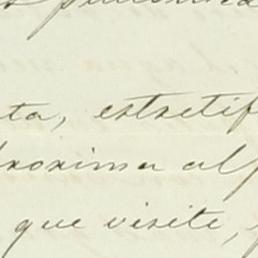 ta, estretif
proxima al
que visite,